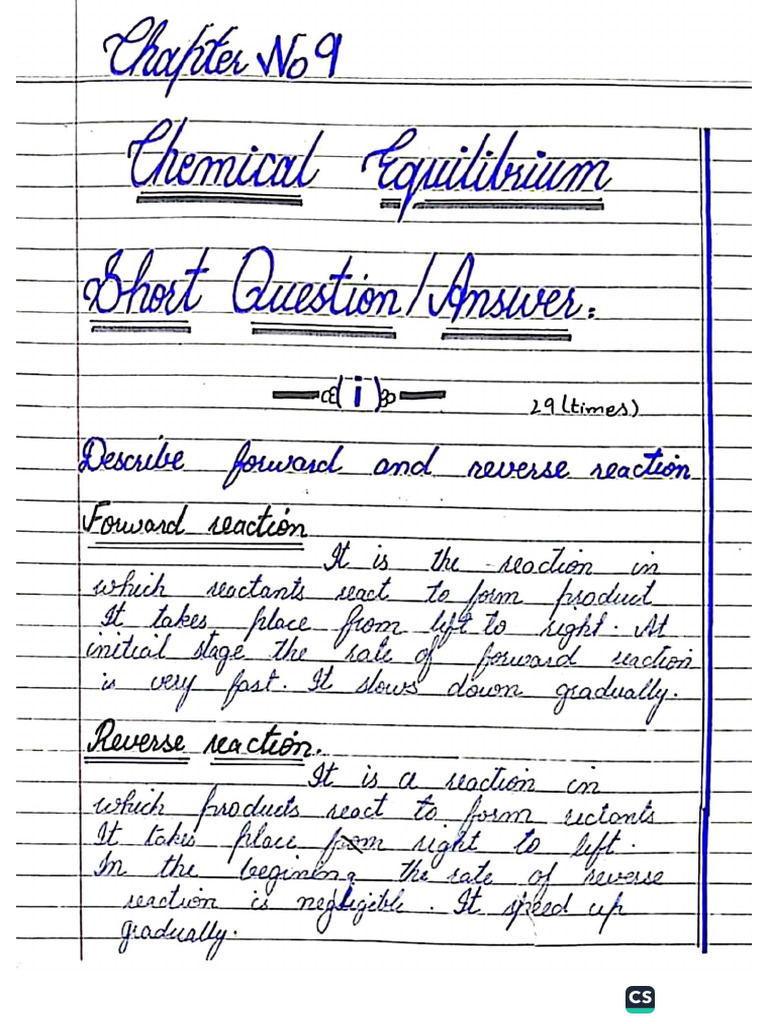 Chapter No 9
Chemical Equilibrium
Short Question/Answer:
(i)
29(times)
Describe forward and reverse reaction
Forward reaction
It is the reaction in
which reactants react to form product
It takes place from left to right. At
initial stage the rate of forward reaction
is very fast. It slows down gradually.
Reverse reaction.
It is a reaction in
which products react to form rectants
It takes place from right to left.
In the begining the rate of reverse
reaction is negligible. It speed up
gradually.
CS